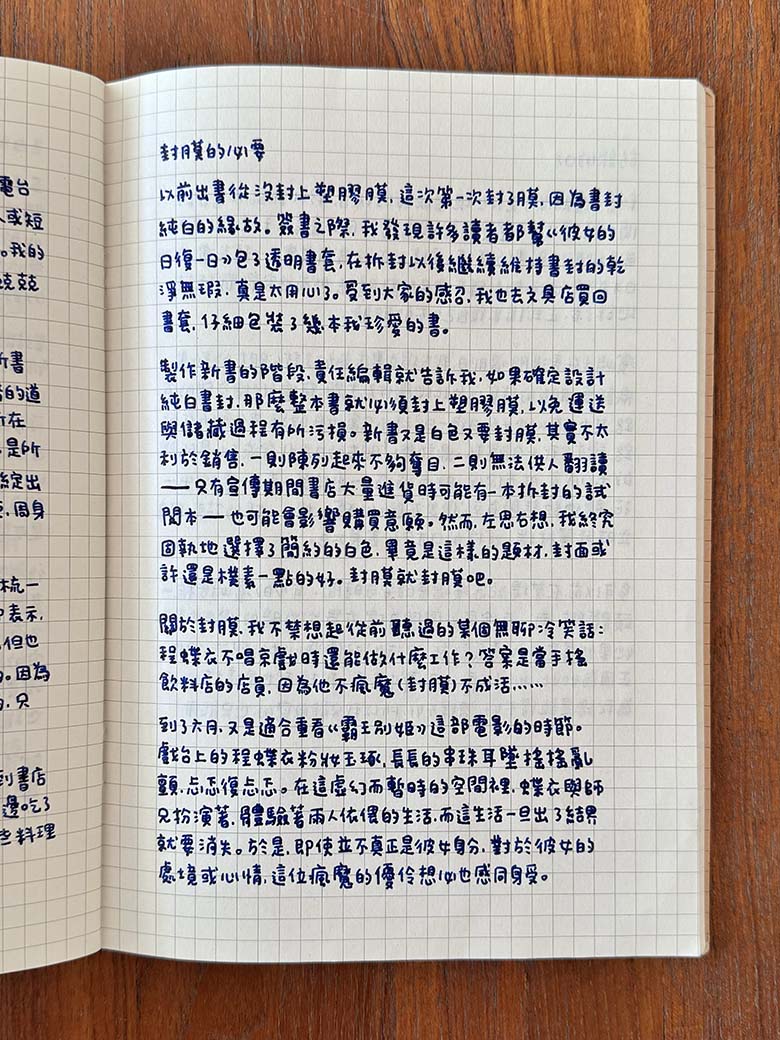 電台
人或短
。我的
兢兢
新書
者的道
所在
是所
綁定出
要，周身
梳一
中表示，
但也
。因為
，只
到書店
邊吃了
些料理
封膜的必要
以前出書從沒封上塑膠膜，這次第一次封了膜，因為書封
純白的緣故。簽書之際，我發現許多讀者都幫《彼女的
日復一日》包了透明書套，在拆封以後繼續維持書封的乾
淨無瑕，真是太用心了。受到大家的感召，我也去文具店買回
書套，仔細包裝了幾本我珍愛的書。
製作新書的階段，責任編輯就告訴我，如果確定設計
純白書封，那麼整本書就必須封上塑膠膜，以免運送
與儲藏過程有所污損。新書又是白色又要封膜，其實不太
利於銷售，一則陳列起來不夠奪目，二則無法供人翻讀
——只有宣傳期間書店大量進貨時可能有一本拆封的試
閱本——也可能會影響購買意願。然而，左思右想，我終究
固執地選擇了簡約的白色，畢竟是這樣的題材，封面或
許還是樸素一點的好。封膜就封膜吧。
關於封膜，我不禁想起從前聽過的某個無聊冷笑話：
程蝶衣不唱京戲時還能做什麼工作？答案是當手搖
飲料店的店員，因為他不瘋魔（封膜）不成活……
到了六月，又是適合重看《霸王別姬》這部電影的時節。
戲台上的程蝶衣粉妝玉琢，長長的串珠耳墜搖搖亂
顫，忐忑復忐忑。在這虛幻而暫時的空間裡，蝶衣與師
兄扮演著，體驗著兩人依偎的生活，而這生活一旦出了結界
就要消失。於是，即使並不真正是彼女身分，對於彼女的
處境或心情，這位瘋魔的優伶想必也感同身受。